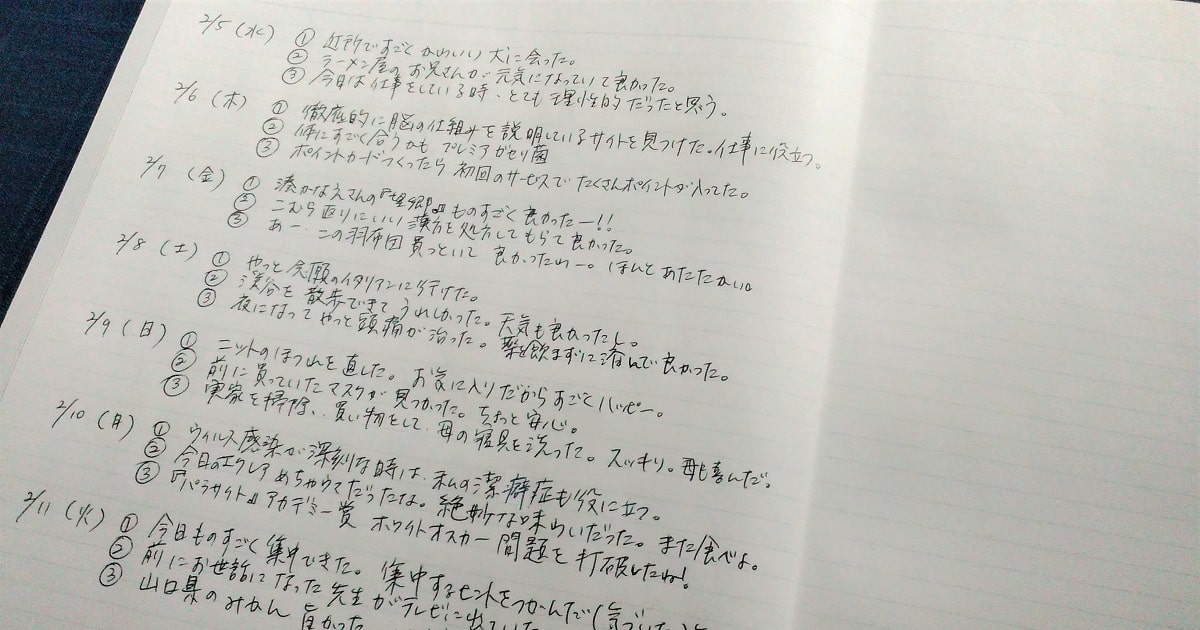 2/5(水) ① 近所ですごくかわいい犬に会った。
② ラーメン屋のお兄さんが元気になっていて良かった。
③ 今日は仕事をしている時、とても理性的だったと思う。
2/6(木) ① 徹底的に脳の仕組みを説明しているサイトを見つけた。仕事に役立つ。
② 体にすごく合うかも プレミアガセリ菌
③ ポイントカードつくったら初回のサービスでたくさんポイントが入ってた。
2/7(金) ① 湊かなえさんの『望郷』ものすごく良かったー!!
② こむら返りにいい漢方を処方してもらて良かった。
③ あー、この羽布団買っといて良かったわー。ほんとあたたかい。
2/8(土) ① やっと念願のイタリアンに行けた。
② 渋谷を散歩できてうれしかった。天気も良かったし。
③ 夜になってやっと頭痛が治った。薬を飲まずに済んで良かった。
2/9(日) ① ニットのほつれを直した。お気に入りだからすごくハッピー。
② 前に買っていたマスクが見つかった。ちょっと安心。
③ 実家を掃除、買い物をして、母の寝具を洗った。スッキリ。母も喜んだ。
2/10(月) ① ウィルス感染が深刻な時は、私の潔癖症も役に立つ。
② 今日のエクレアめちゃウマだったな。絶妙な味わいだった。また食べよ。
③ 『パラサイト』アカデミー賞 ホワイトオスカー問題を打破したね!
2/11(火) ① 今日ものすごく集中できた。集中するヒントをつかんだ(気づいた)
② 前にお世話になった先生がテレビに出ていた
③ 山口県のみかん 旨かった